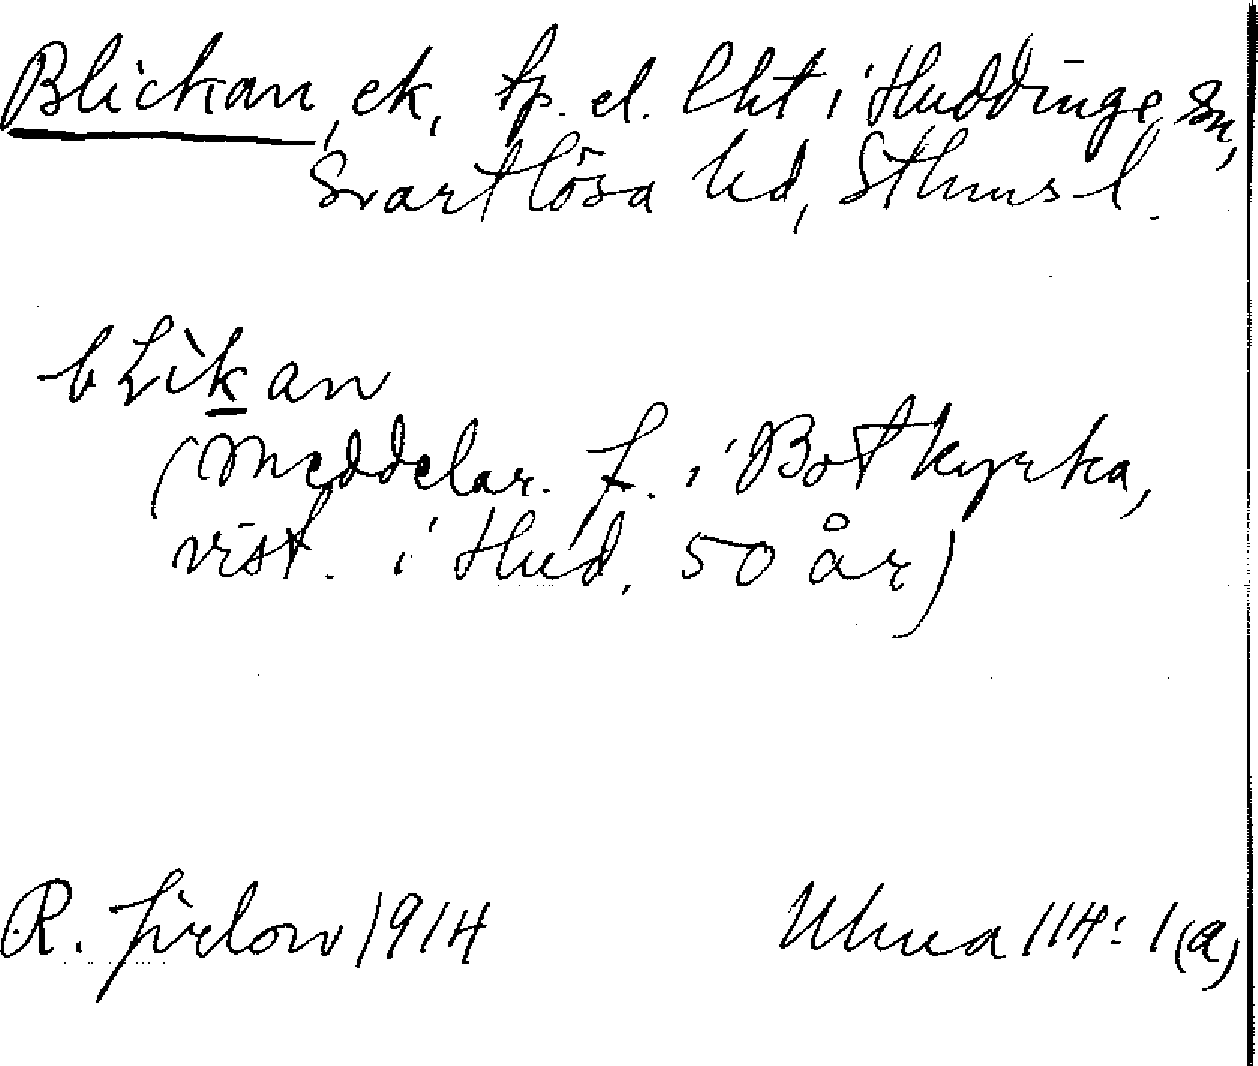 Blickan, ek, tp. el. lht i Huddinge sn,
Svartlösa hd, Sthms l.
bLìkan
(Meddelar. f. i Botkyrka,
vist. i Hud. 50 år)
R. Jirlow 1914 Uhua 114:1(a)